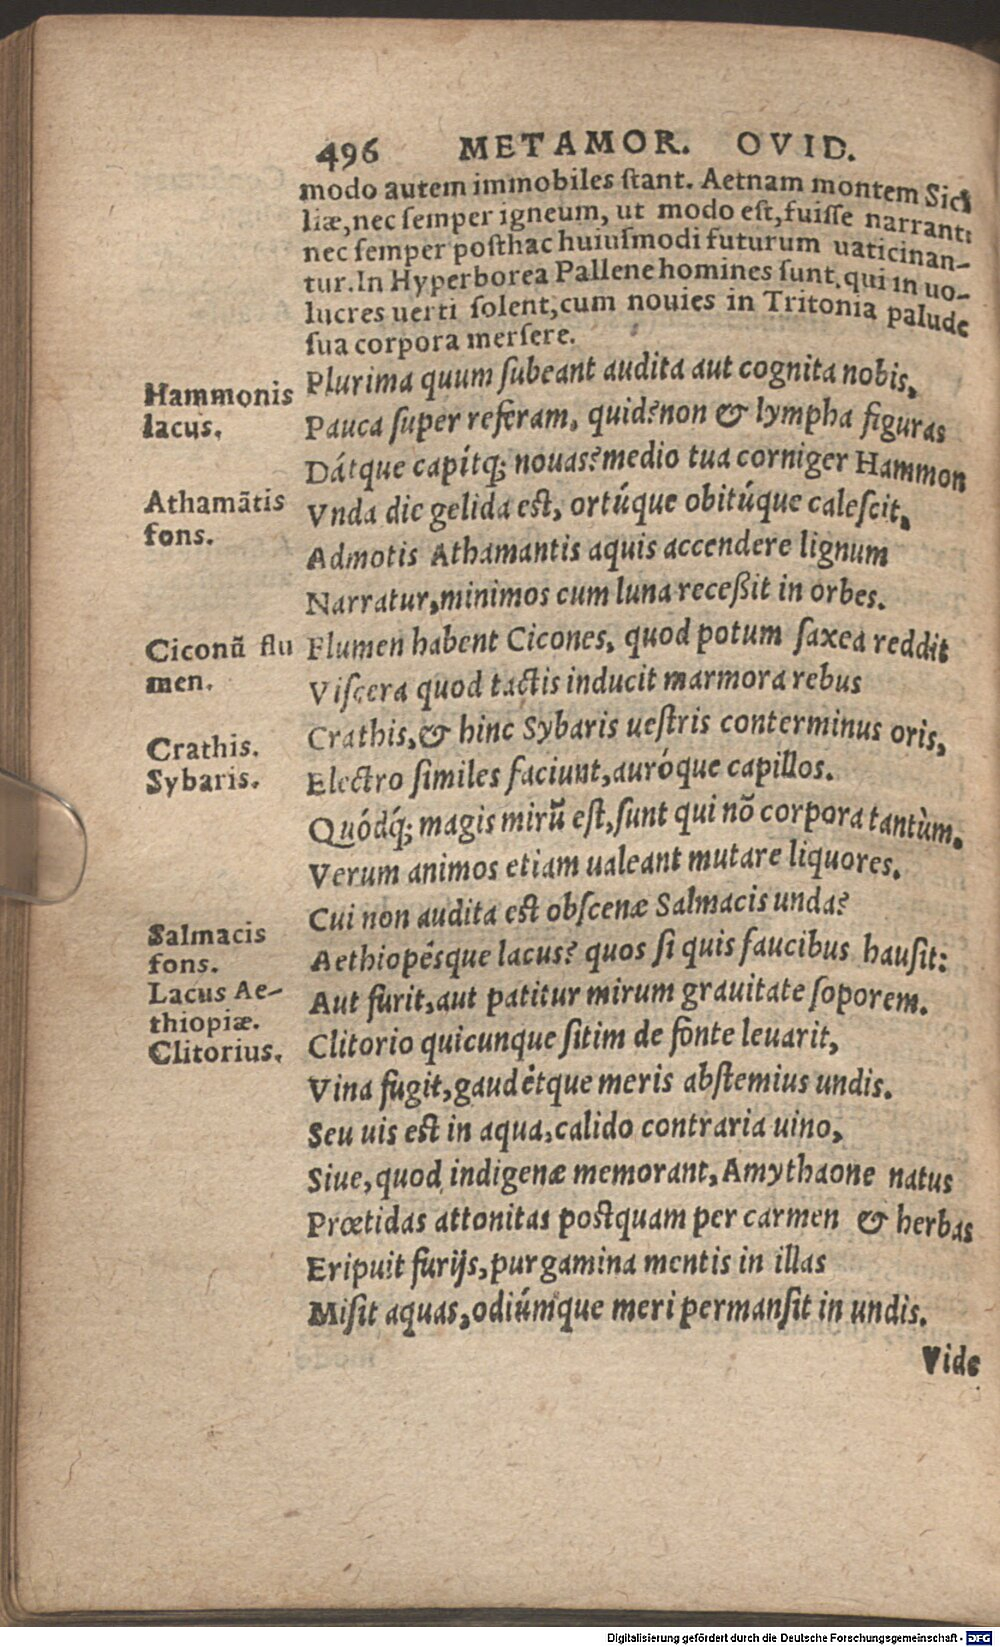 496 METAMOR. OVID.
modo autem immobiles stant. Aetnam montem Sici
liæ, nec semper igneum, ut modo est, fuisse narrant:
nec semper posthac huiusmodi futurum uaticinan-
tur. In Hyperborea Pallene homines sunt, qui in uo-
lucres uerti solent, cum nouies in Tritonia palude
sua corpora mersere.
Plurima quum subeant audita aut cognita nobis,
Hammonis
lacus.
Pauca super referam, quid? non & lympha figuras
Dátque capítq; nouas? medio tua corniger Hammon
Athamãtis
fons.
Vnda die gelida est, ortúque obitúque calescit,
Admotis Athamantis aquis accendere lignum
Narratur, minimos cum luna receßit in orbes.
Ciconũ flu
men.
Flumen habent Cicones, quod potum saxea reddit
Viscera quod tactis inducit marmora rebus
Crathis.
Sybaris.
Crathis, & hinc Sybaris uestris conterminus oris,
Electro similes faciunt, auróque capillos.
Quódq́; magis mirũ est, sunt qui nõ corpora tantùm,
Verum animos etiam ualeant mutare liquores.
Salmacis
fons.
Cui non audita est obscenæ Salmacis unda?
Lacus Ae-
thiopiæ.
Aethiopésque lacus? quos si quis faucibus hausit:
Aut furit, aut patitur mirum grauitate soporem.
Clitorius.
Clitorio quicunque sitim de fonte leuarit,
Vina fugit, gaudétque meris abstemius undis.
Seu uis est in aqua, calido contraria uino,
Siue, quod indigenæ memorant, Amythaone natus
Prœtidas attonitas postquam per carmen & herbas
Eripuit furijs, purgamina mentis in illas
Misit aquas, odiúmque meri permansit in undis.
Vide
Digitalisierung gefördert durch die Deutsche Forschungsgemeinschaft - DFG